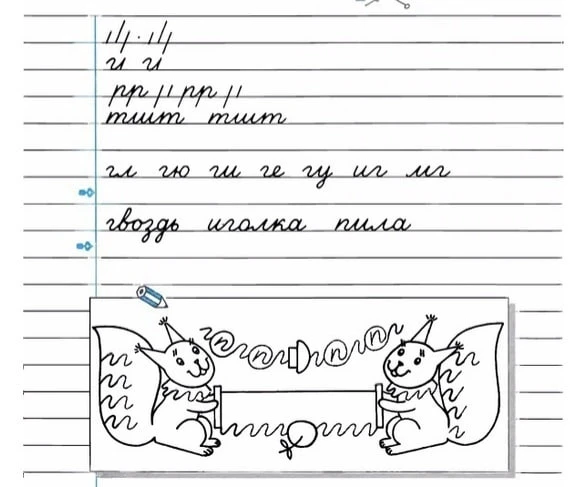 и и
рр рр
тшт тшт
гл гю ги ге гу иг мг
гвоздь иголка пила
п п п п